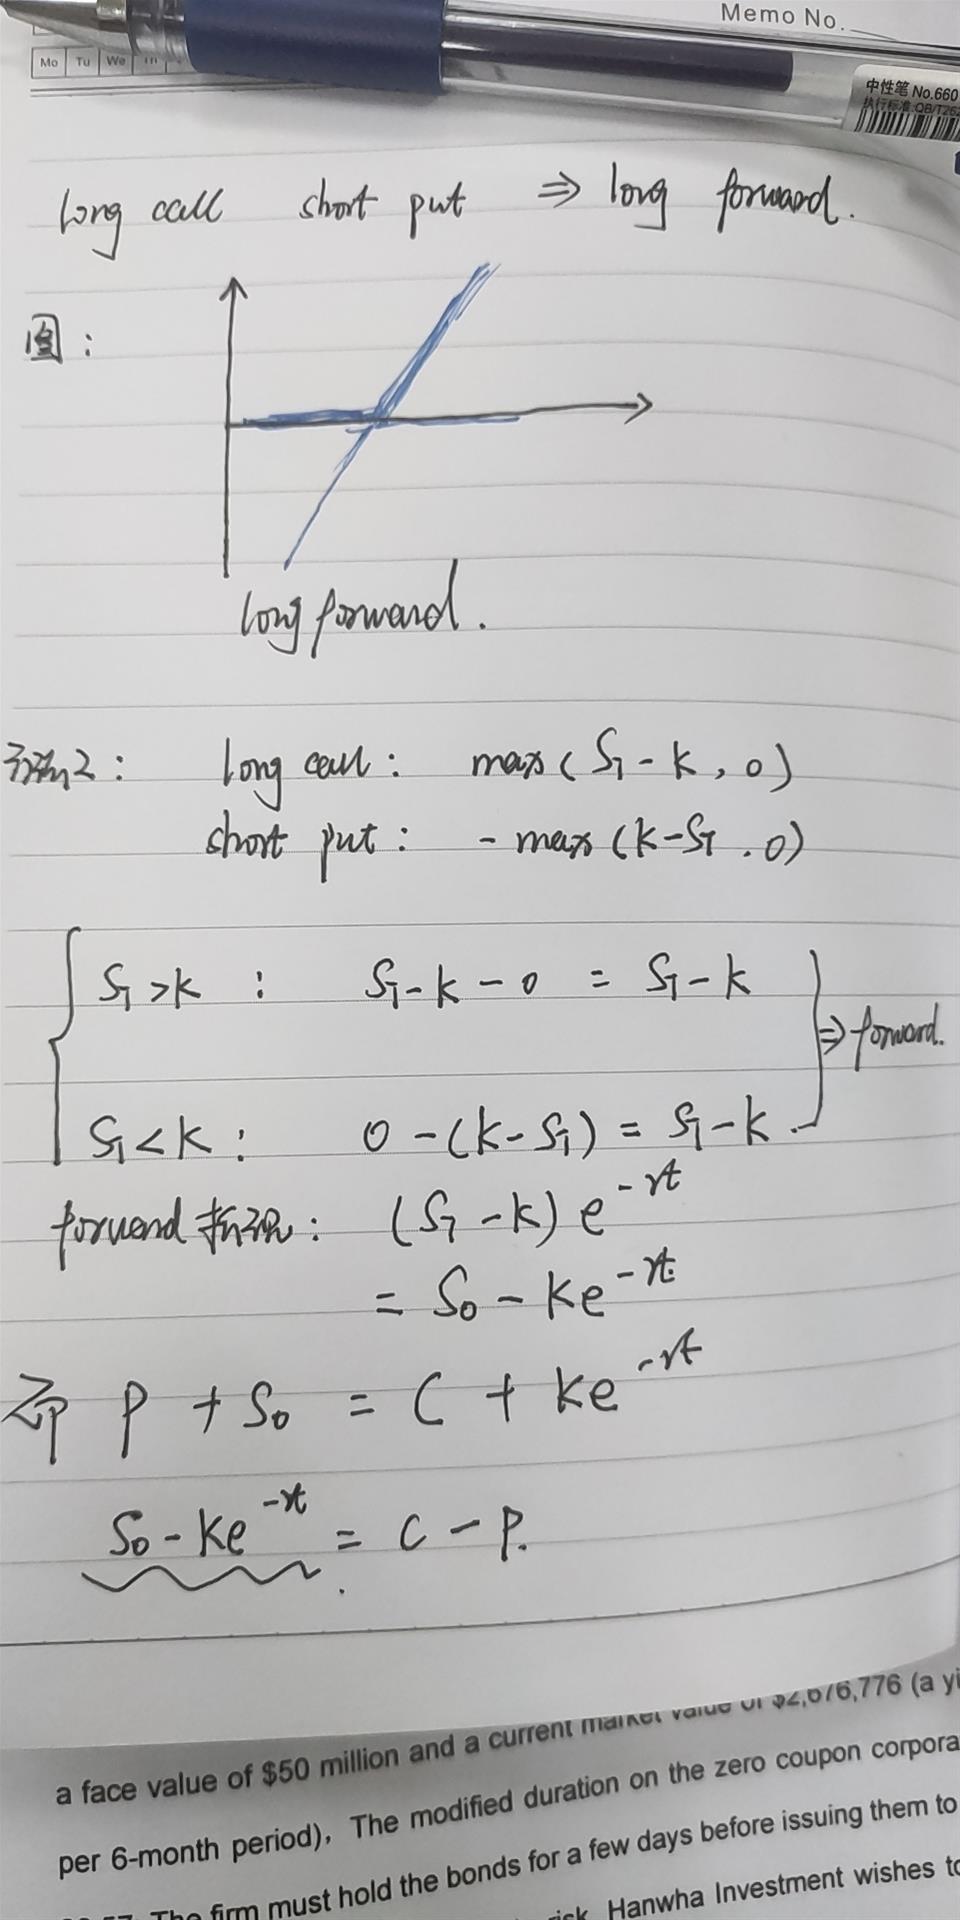 Memo No.
Mo Tu We
中性笔 No.660
执行标准:QB/T262
long call short put ⇒ long forward.
图:
long forward.
方法2: long call: max(S_T-K, 0)
short put: -max(K-S_T, 0)
S_T>K: S_T-K-0 = S_T-K
⇒ forward.
S_T<K: 0-(K-S_T) = S_T-K
forward 折现: (S_T-K)e^-rt
= S₀-Ke^-rt
即 P + S₀ = C + Ke^-rt
S₀-Ke^-rt = C-P.
a face value of $50 million and a current market value of $2,676,776 (a yi
per 6-month period), The modified duration on the zero coupon corpora
The firm must hold the bonds for a few days before issuing them to
risk. Hanwha Investment wishes to